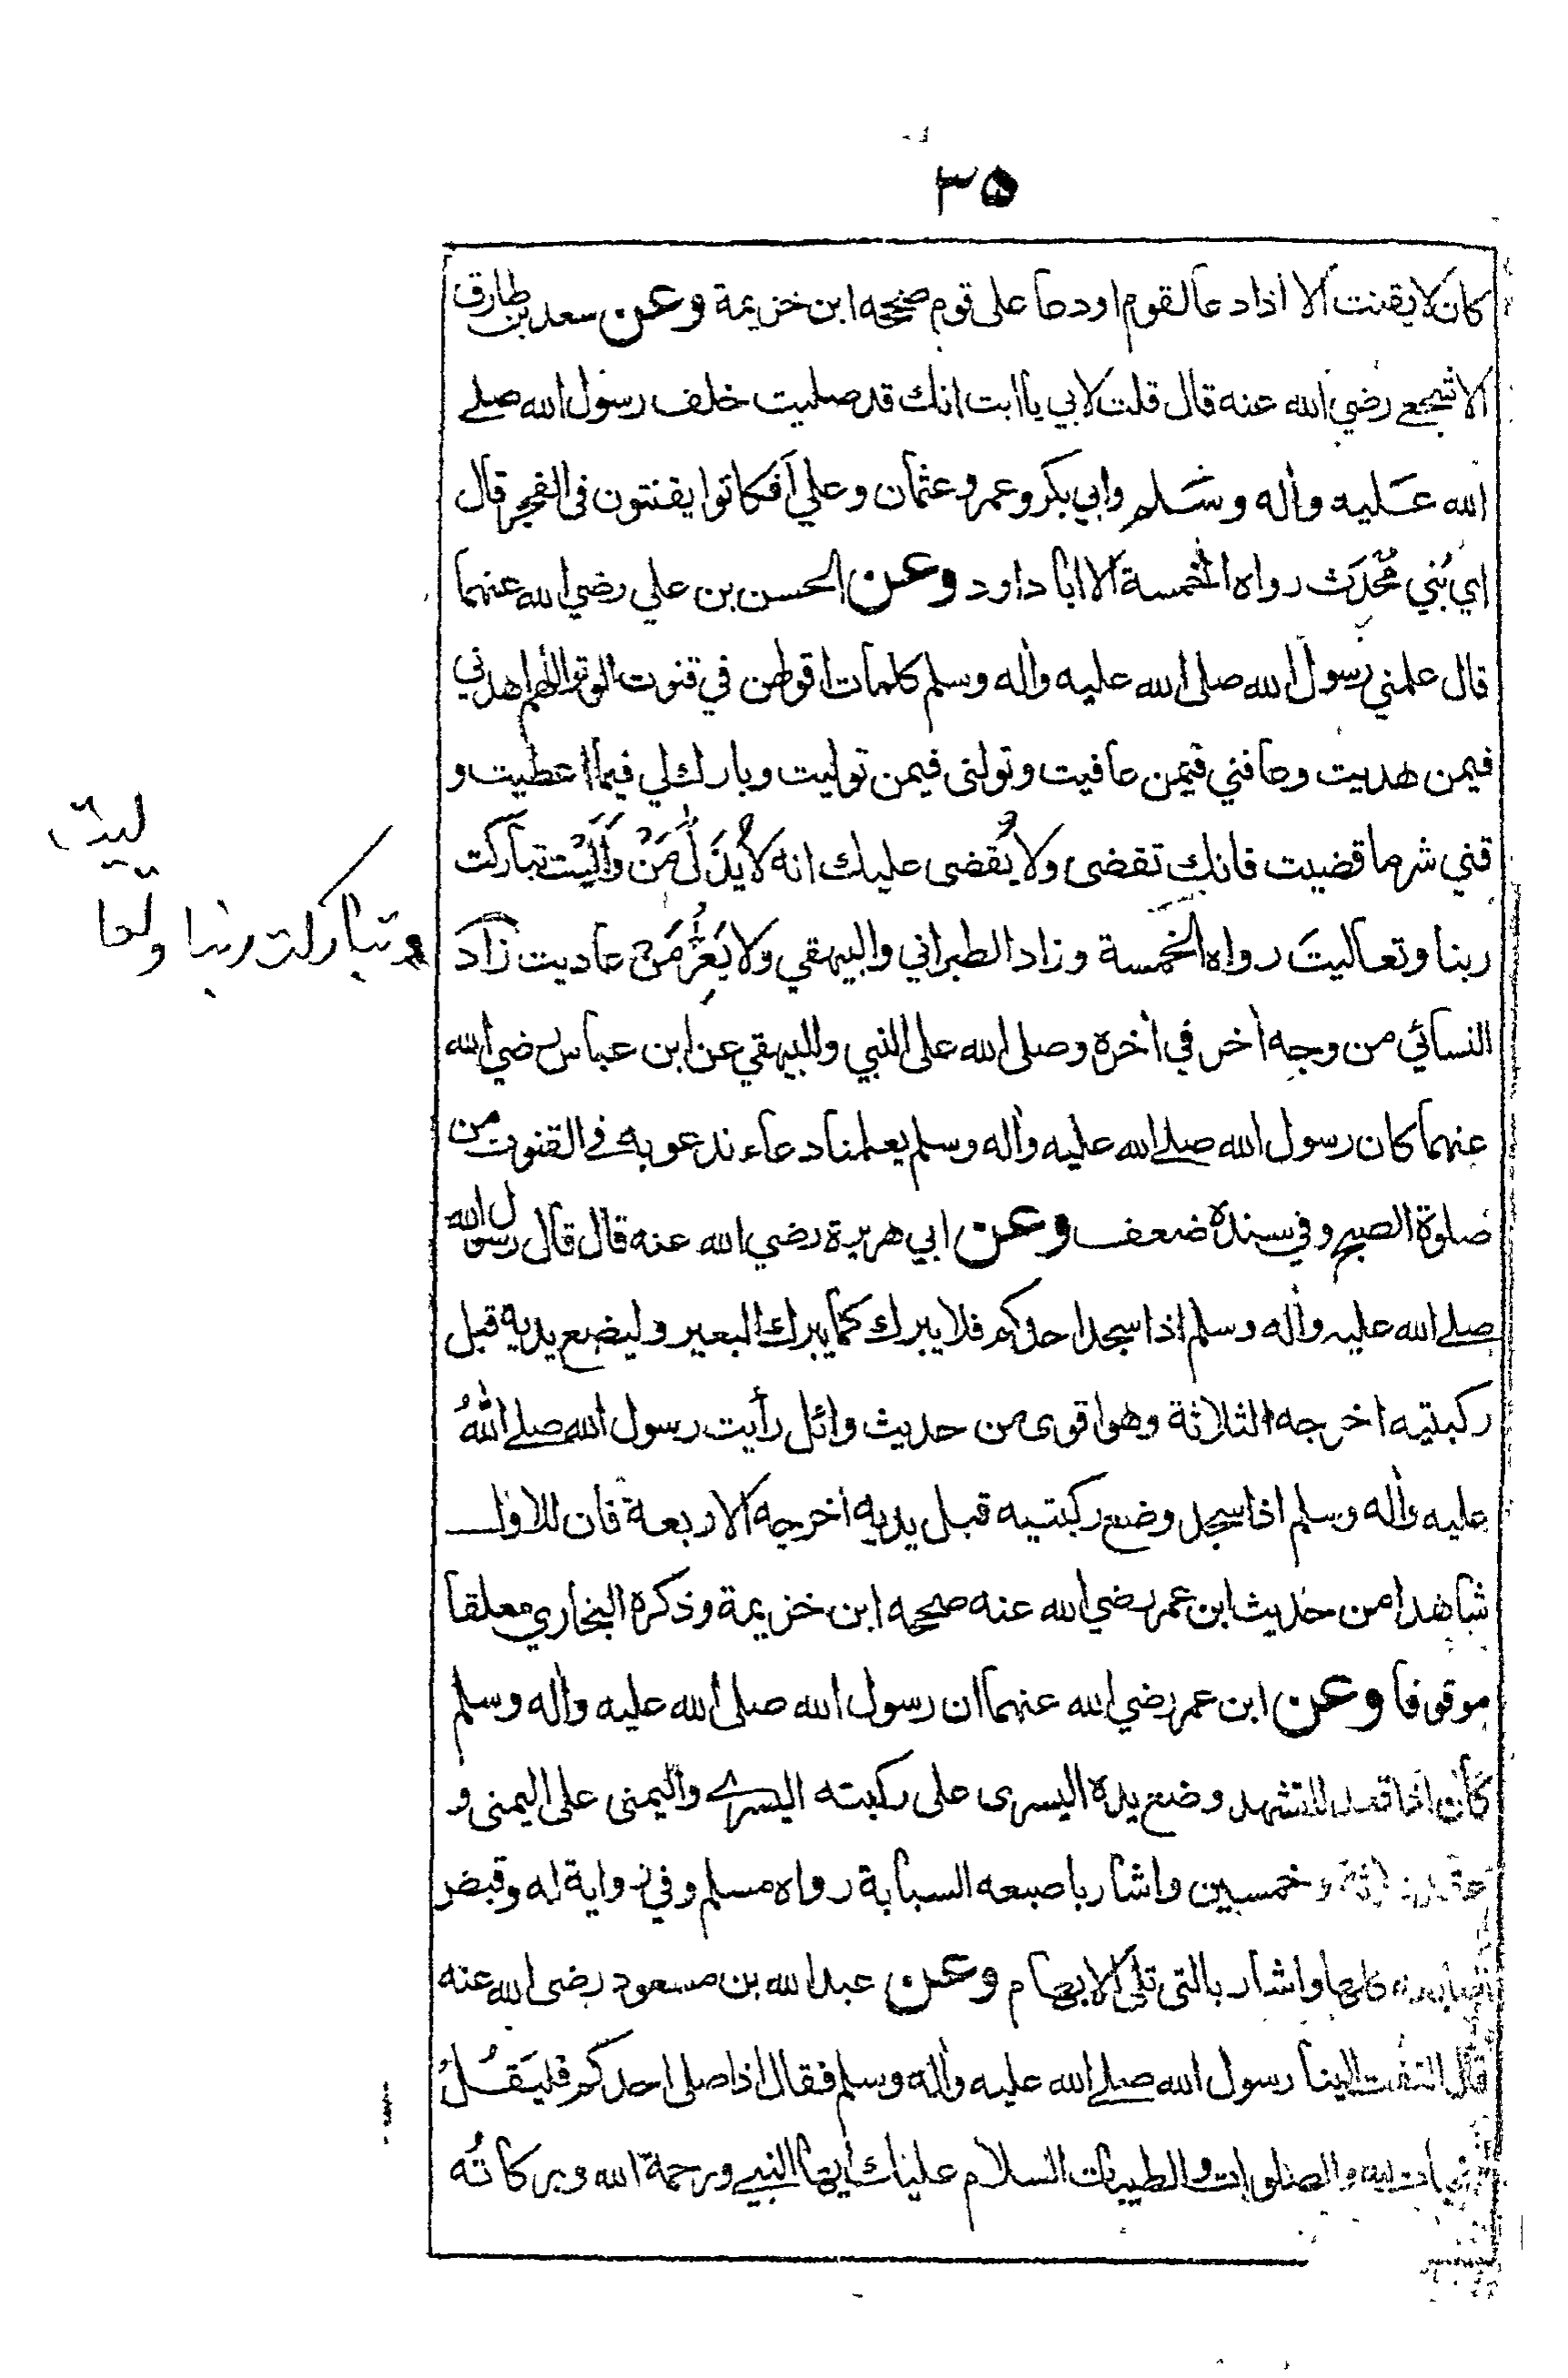 ٣٥
كان لا يقنت الا اذا دعا لقوم او دعا على قوم صححه ابن خزيمة وعن سعد بن طارق
الاشجعي رضي الله عنه قال قلت لابي يا ابت انك قد صليت خلف رسول الله صلے
الله عليه واله وسلم وابي بكر وعمر وعثمان وعلي أفكانوا يقنتون في الفجر قال
اي بُني مُحْدَث رواه الخمسة الا ابا داود وعن الحسن بن علي رضي الله عنهما
قال علمني رسول الله صلى الله عليه واله وسلم كلمات اقولهن في قنوت الوتر اللهم اهدني
فيمن هديت وعافني فيمن عافيت وتولنى فيمن توليت وبارك لي فيما اعطيت و
قني شر ما قضيت فانك تقضى ولا يُقضى عليك انه لا يُذَلُّ مَنْ وَالَيْتَ تباركت
ربنا وتعاليتَ رواه الخمسة وزاد الطبراني والبيهقي ولا يَعِزُّ مَن عاديت زاد
ليت
وتباركت ربنا ولعا
النسائي من وجه اخر في اخره وصلى الله على النبي وللبيهقي عن ابن عباس رضي الله
عنهما كان رسول الله صلے الله عليه واله وسلم يعلمنا دعاء ندعو به في القنوت من
صلوة الصبح وفي سنده ضعف وعن ابي هريرة رضي الله عنه قال قال رسول الله
صلے الله عليه واله وسلم اذا سجد احدكم فلا يبرك كما يبرك البعير وليضع يديه قبل
ركبتيه اخرجه الثلاثة وهو اقوى من حديث وائل رأيت رسول الله صلے اللهُ
عليه واله وسلم اذا سجد وضع ركبتيه قبل يديه اخرجه الاربعة فان للاول
شاهدا من حديث ابن عمر رضي الله عنه صححه ابن خزيمة وذكره البخاري معلقا
موقوفا وعن ابن عمر رضي الله عنهما ان رسول الله صلى الله عليه واله وسلم
كان اذا قعد للتشهد وضع يده اليسرى على ركبته اليسرے واليمنى على اليمنى و
وخمسين واشار باصبعه السبابة رواه مسلم وفي رواية له وقبض
اصابعه كلها واشار بالتى تلي الابهام وعن عبد الله بن مسعود رضى الله عنه
قال التفت الينا رسول الله صلے الله عليه واله وسلم فقال اذا صلى احدكم فليَقُلْ
التحيات لله والصلوات والطيبات السلام عليك ايها النبي ورحمة الله وبركاتُه